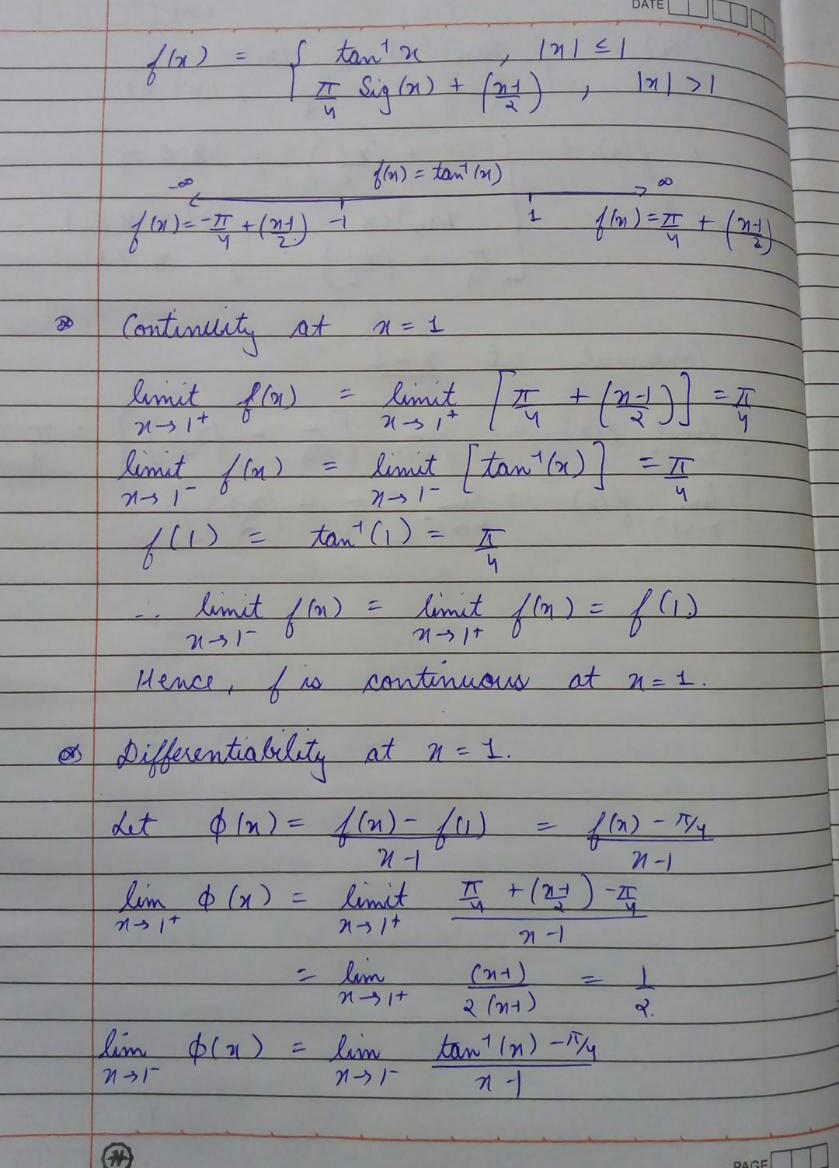 DATE
f(x) = { tan⁻¹ x , |x| ≤ 1
π/4 Sig(x) + (x-1/2) , |x| > 1
f(x) = tan⁻¹(x)
-∞ ∞
f(x) = -π/4 + (x-1/2) -1 1 f(x) = π/4 + (x-1/2)
Continuity at x = 1
limit x→1⁺ f(x) = limit x→1⁺ [π/4 + (x-1/2)] = π/4
limit x→1⁻ f(x) = limit x→1⁻ [tan⁻¹(x)] = π/4
f(1) = tan⁻¹(1) = π/4
∴ limit x→1⁻ f(x) = limit x→1⁺ f(x) = f(1)
Hence, f is continuous at x = 1.
Differentiability at x = 1.
Let ϕ(x) = f(x) - f(1) / x-1 = f(x) - π/4 / x-1
lim x→1⁺ ϕ(x) = limit x→1⁺ π/4 + (x-1/2) - π/4 / x-1
= lim x→1⁺ (x-1) / 2(x-1) = 1/2.
lim x→1⁻ ϕ(x) = lim x→1⁻ tan⁻¹(x) - π/4 / x-1
PAGE